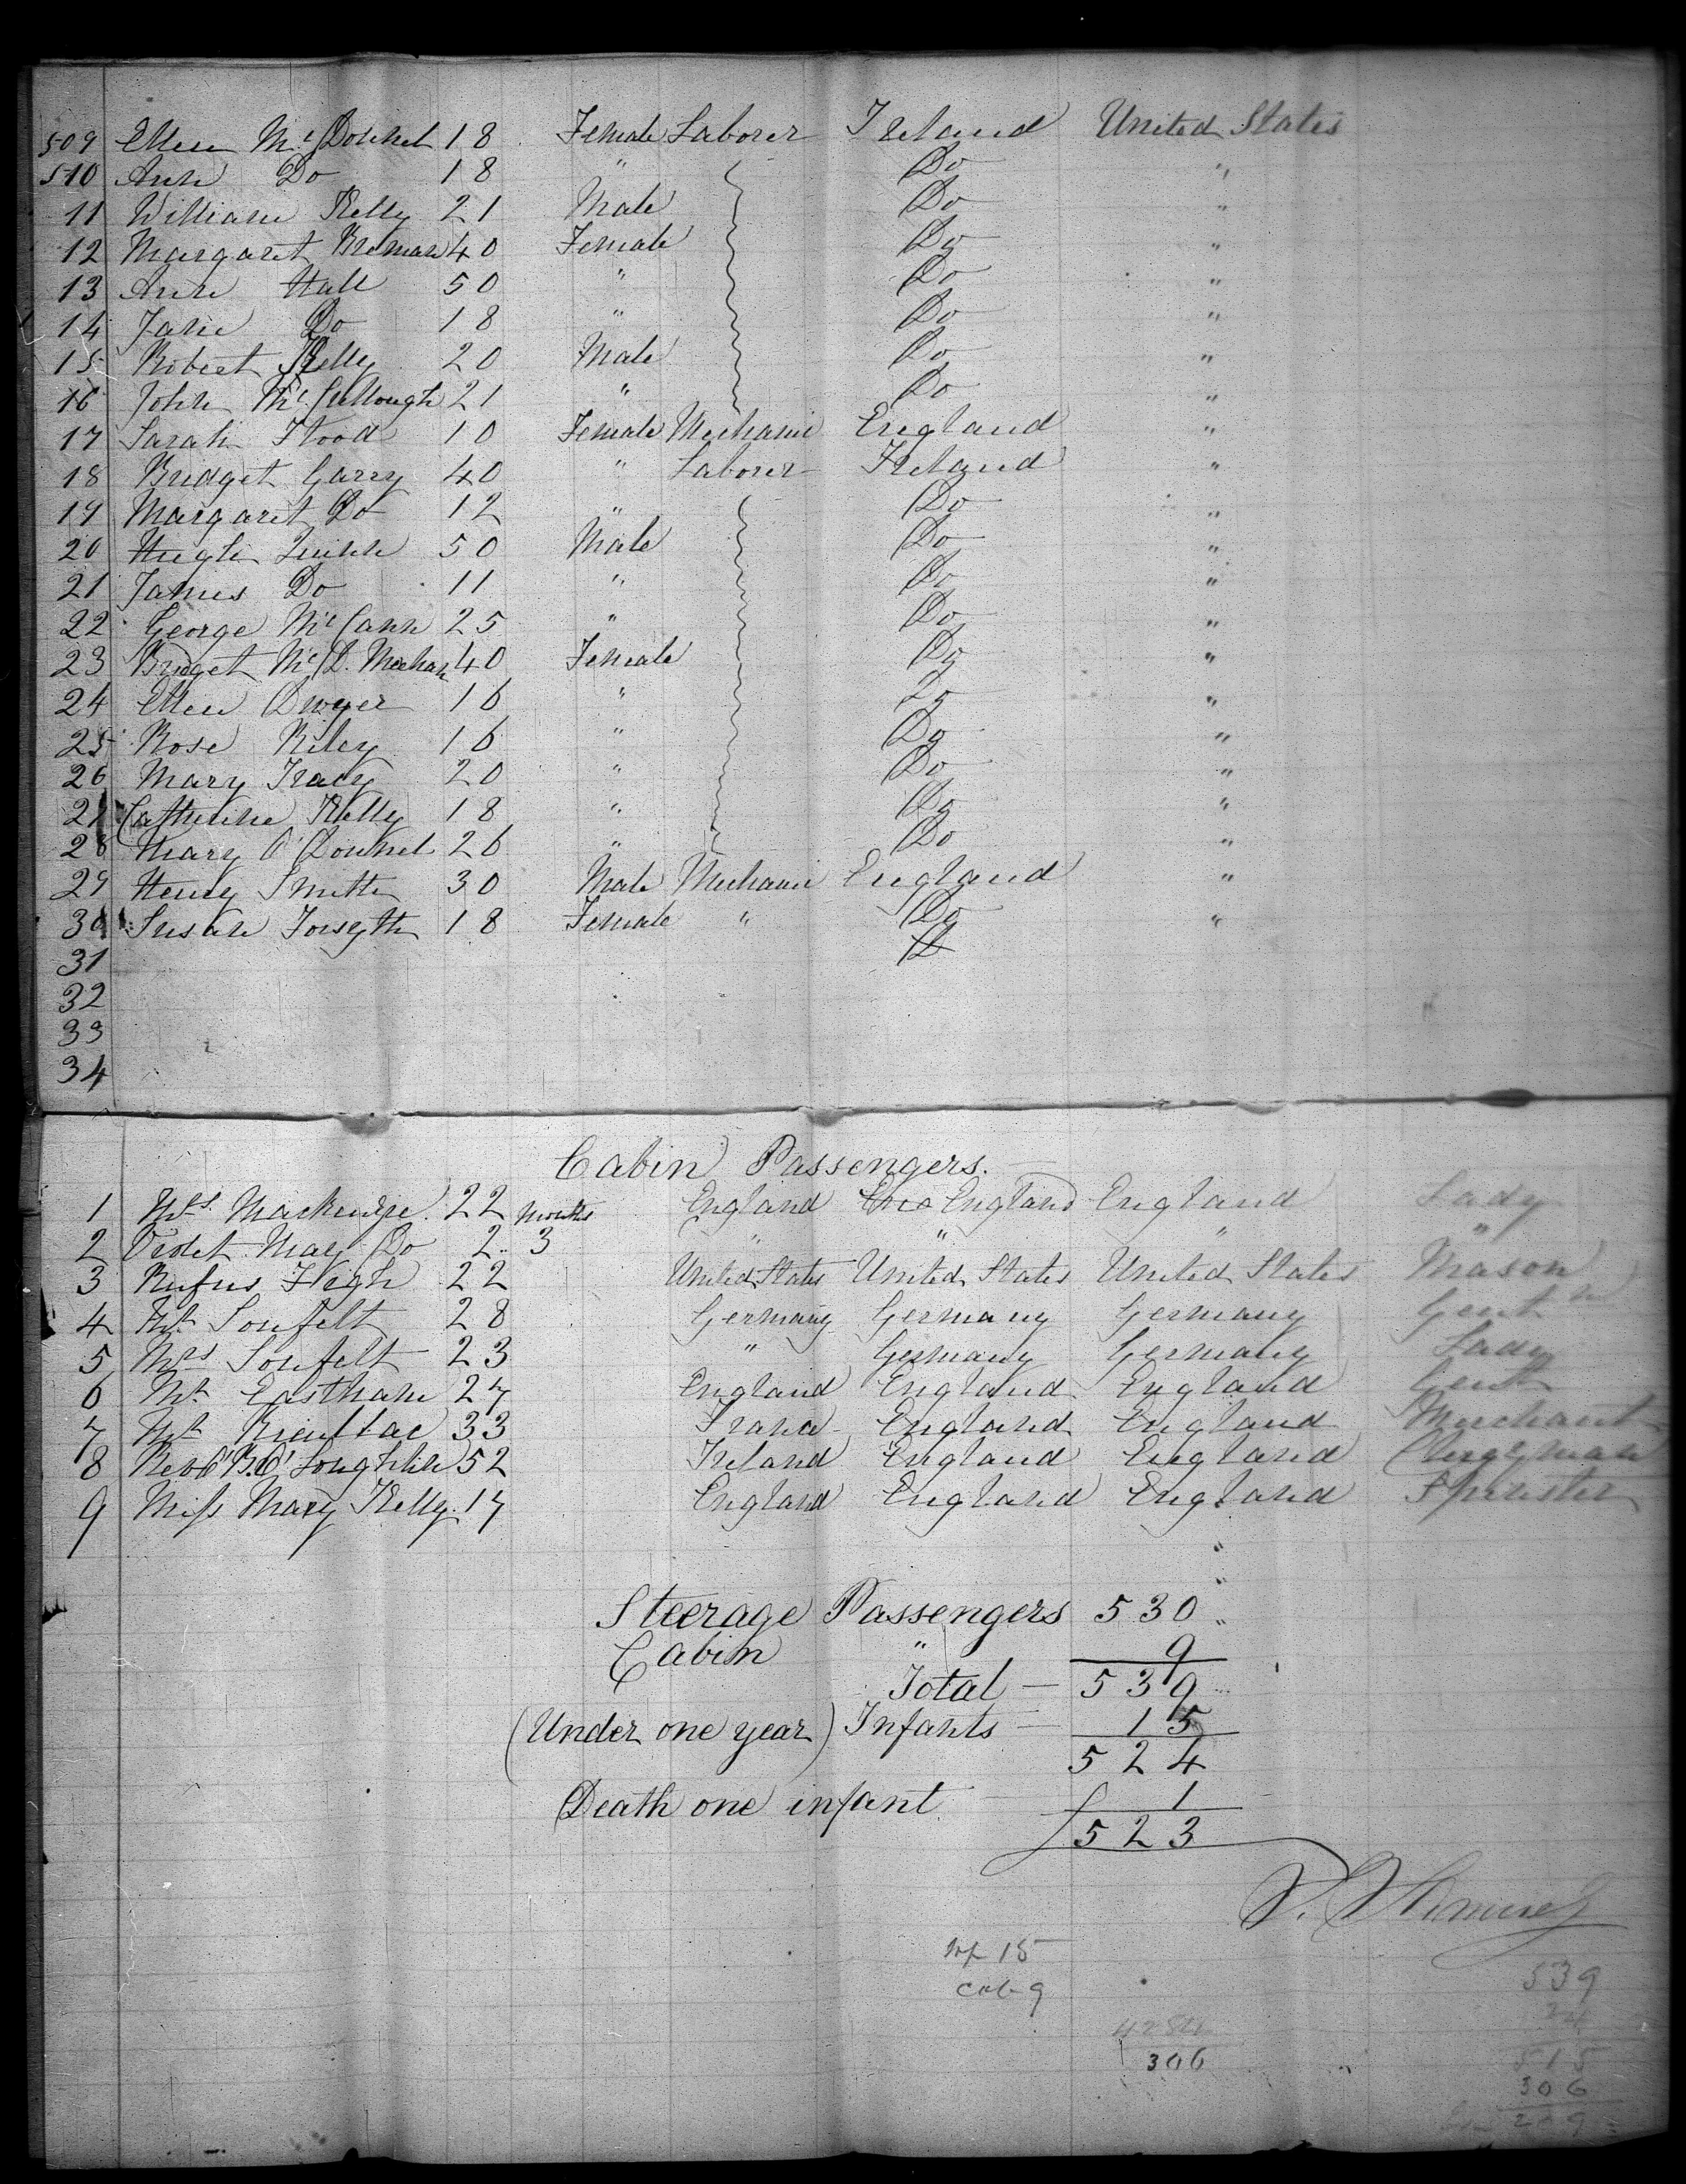 509 Ellen McDonnel 18 Female Laborer Ireland United States
510 Ann Do 18 " Do "
11 William Kelly 21 Male Do "
12 Margaret Brenan 40 Female Do "
13 Ann Hall 50 " Do "
14 Jane Do 18 " Do "
15 Robert Kelly 20 Male Do "
16 John McCullough 21 " Do "
17 Sarah Flood 10 Female Mechanic England "
18 Bridget Garry 40 " Laborer Ireland "
19 Margaret Do 12 " Do "
20 Hugh Quinn 50 Male Do "
21 James Do 11 " Do "
22 George McCann 25 " Do "
23 Bridget Mc 40 Female Do "
24 Ellen Dwyer 16 " Do "
25 Rose Riley 16 " Do "
26 Mary Tracy 20 " Do "
27 Catherine Kelly 18 " Do "
28 Mary O'Donnel 26 " Do "
29 Henry Smith 30 Male Mechanic England "
30 Susan Forsyth 18 Female " Do "
31
32
33
34
Cabin Passengers.
1 Mrs. Mackenzie 22 Months England England England Lady
2 Violet May Do 2 3 " " " "
3 Rufus High 22 United States United States United States Mason
4 Mr Sonfelt 28 Germany Germany Germany Gentn
5 Mrs Sonfelt 23 " Germany Germany Lady
6 Mr. Eastham 27 England England England Gent
7 Mr 33 France England England Merchant
8 Revd B. O'Loughlin 52 Ireland England England Clergyman
9 Miss Mary Kelly 17 England England England Spinster
"
"
Steerage Passengers 530 "
Cabin " 9
Total — 539
(Under one year) Infants — 15
524
Death one infant 1
523
Inf 15
Cab 9
306
539
24
515
306
209